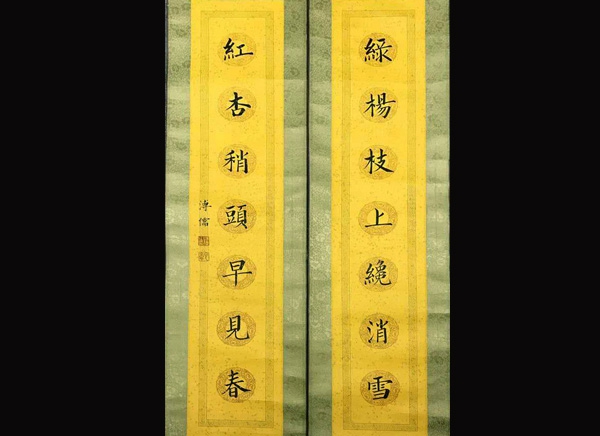 綠楊枝上纔消雪
紅杏稍頭早見春
溥儒